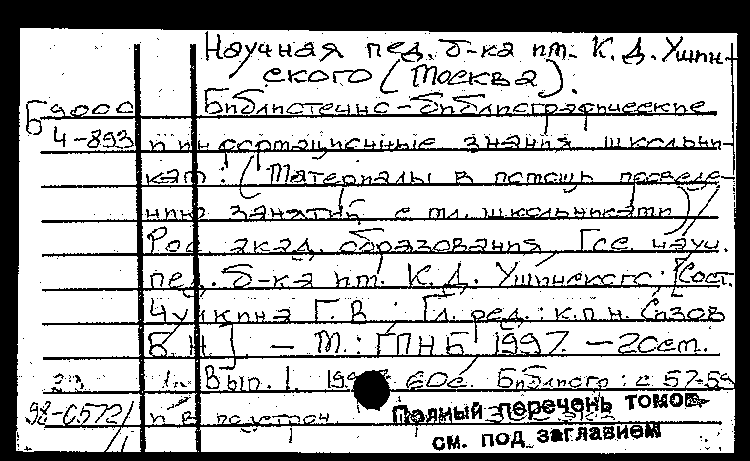 Научная пед. б-ка им. К. Д. Ушин-
ского (Москва).
Б 9000 Библиотечно-библиографические
4-893 и информационные знания школьни-
кам: (Материалы в помощь проведе-
нию занятий с мл. школьниками) /
Рос. акад. образования, Гос. науч.
пед. б-ка им. К. Д. Ушинского; [Сост.
Чулкина Г. В.; Гл. ред.: к.п.н. Сизов
Б. Н.]. - М.: ГПНБ, 1997. - 20см.
Вып. 1. 60с. Библиогр.: с 57-59
98-0572/
Полный перечень томов
см. под заглавием